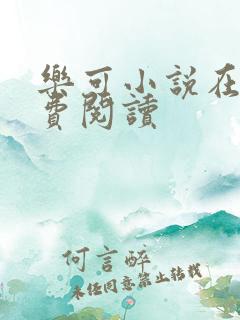 樂可小說在
費閱讀
何言醉
未經同意禁止轉載